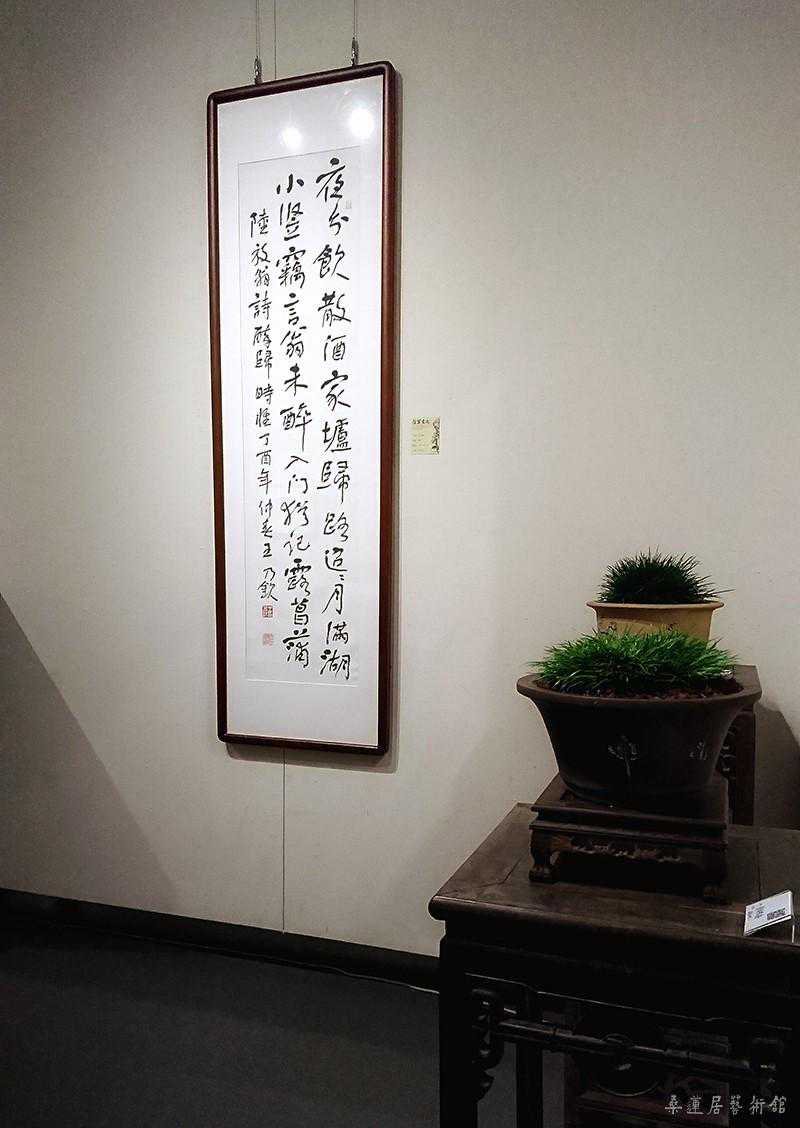 夜分飲散酒家壚歸路迢々月滿湖
小豎竊言翁未醉入门猶记露菖蒲
陸放翁詩醉歸 時惟丁酉年仲春王乃欽
桑蓮居藝術館